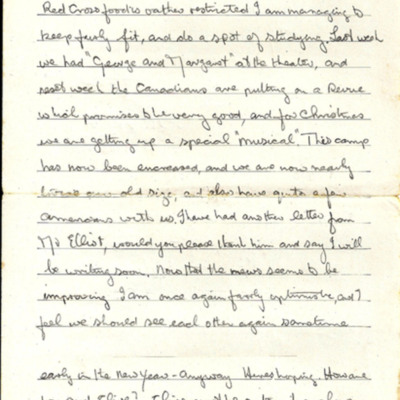 Red Cross food is rather restricted I am managing to
keep fairly fit, and do a spot of studying. Last week
we had "George and Margaret" at the theatre, and
next week the Canadians are putting on a Revue
which promises to be very good, and for Christmas
we are getting up a special "musical". This camp
has now been increased, and we are now nearly
our old size, and also have quite a few
Americans with us. I have had another letter from
Mr Elliot, would you please thank him and say I will
be writing soon. Now that the news seems to be
improving I am once again fairly optimistic, and I
feel we should see each other again sometime
early in the New Year - Anyway Heres hoping. How are